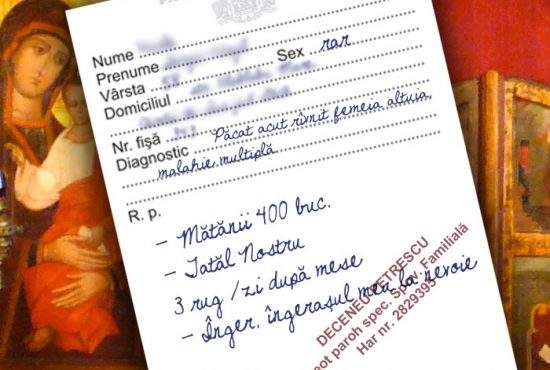 Nume
Prenume
Vârsta Sex rar
Domiciliul
Nr. fişă
Diagnostic Păcat acut rîvnit femeia altuia,
malahie multiplă
R. p.
- Mătănii 400 buc.
- Tatăl Nostru
3 rug / zi după mese
- Înger, îngeraşul meu la nevoie
DECENEU PETRESCU
eot paroh spec. Spov. Familială
Har nr. 2829395